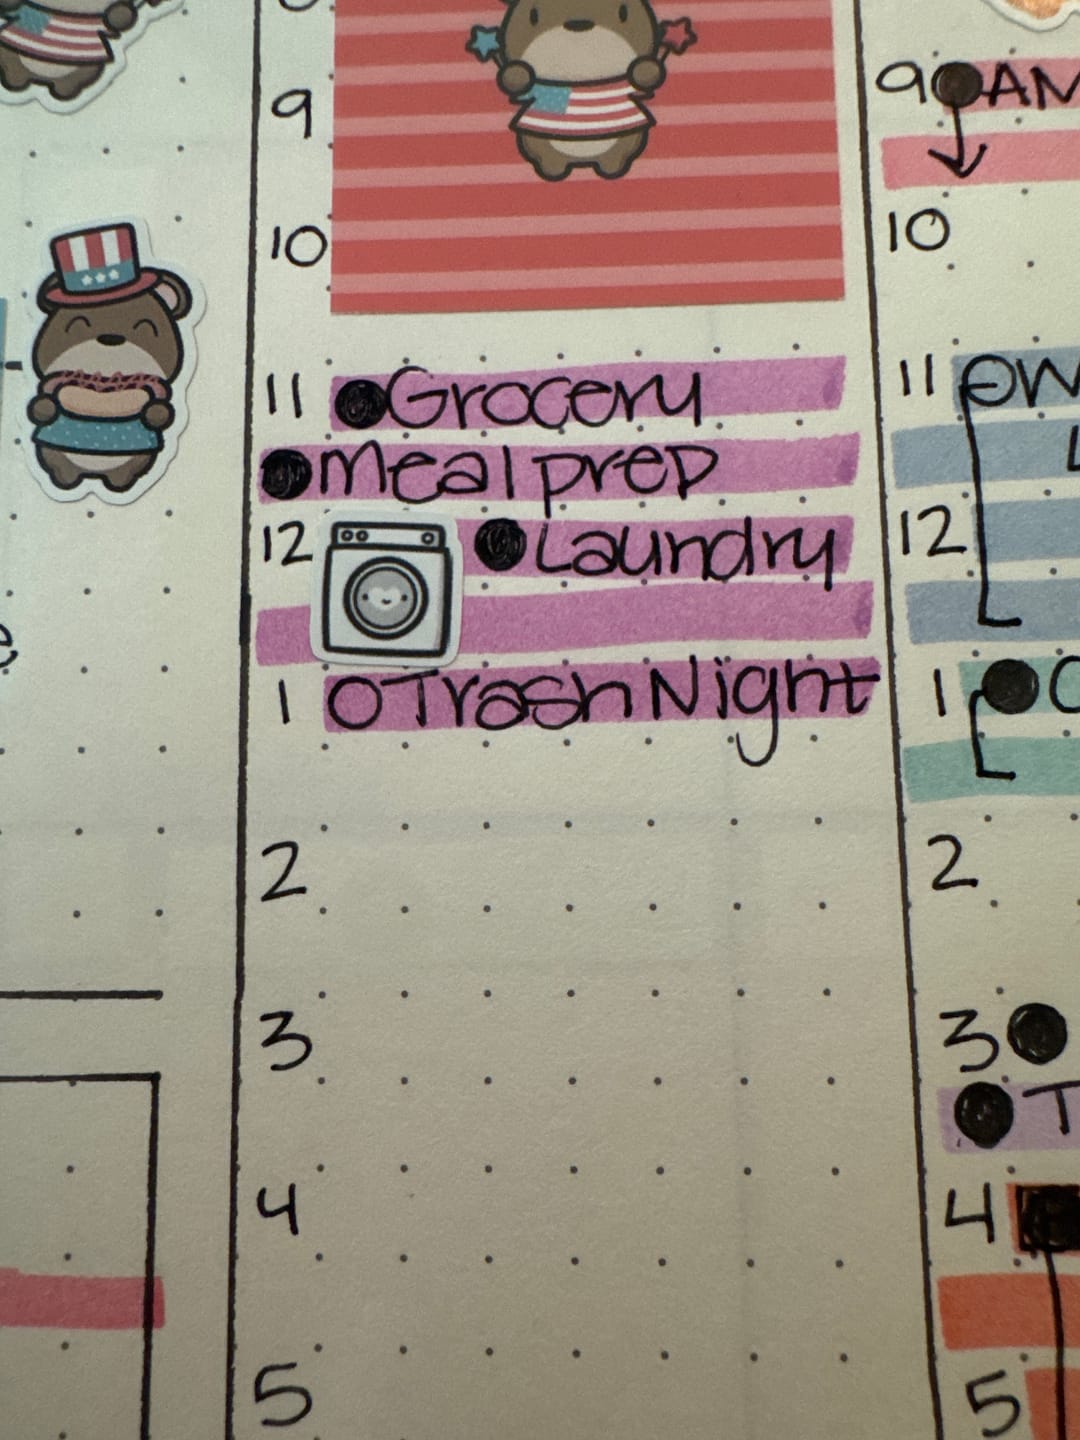 9
10
11 Grocery
Meal prep
12 Laundry
1 Trash Night
2
3
4
5
9 AM
10
11
12
1
2
3
4
5